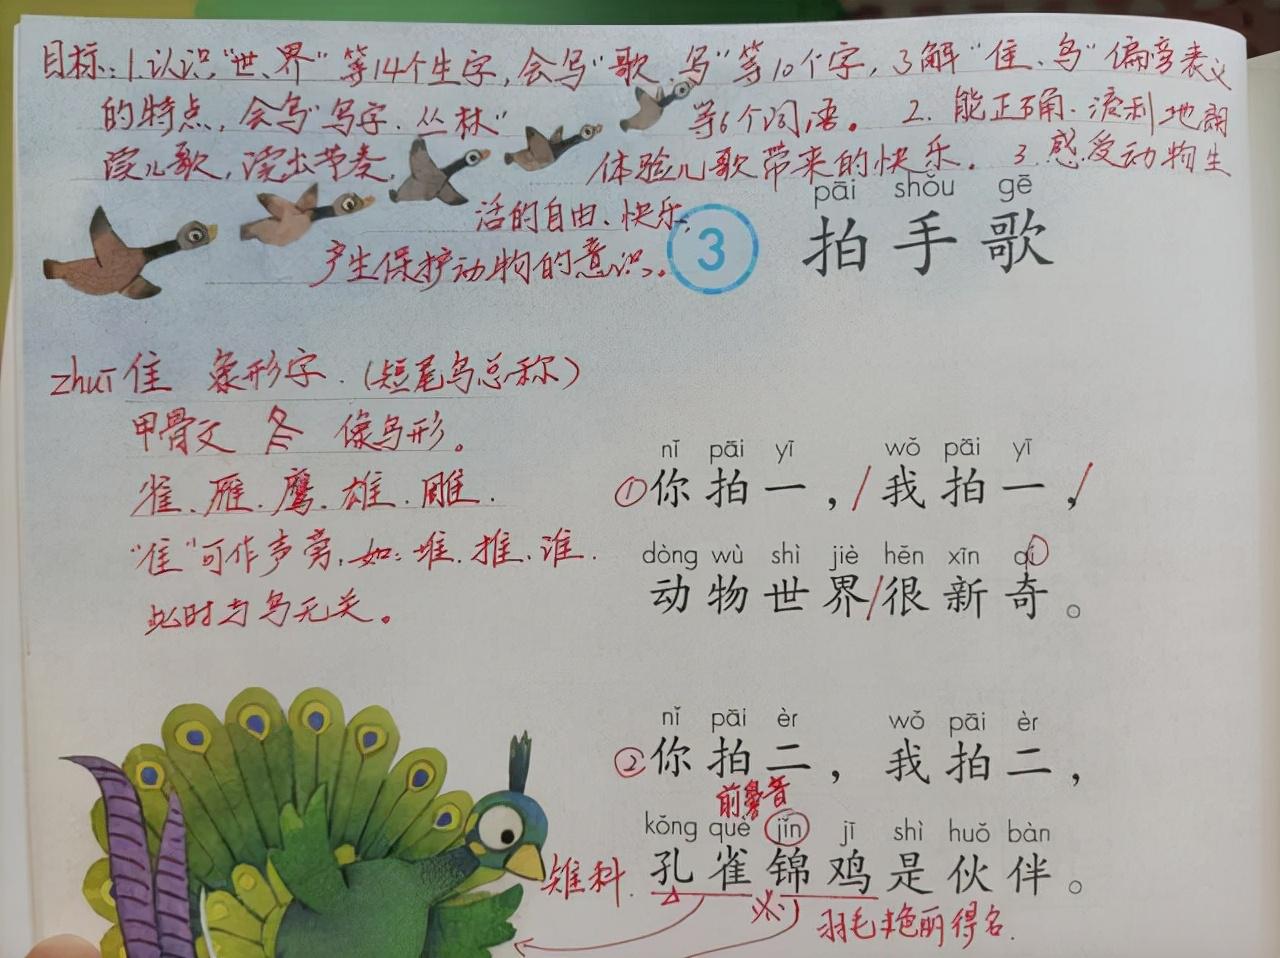 目标:1.认识“世、界”等14个生字,会写“歌、写”等10个字,了解“隹、鸟”偏旁表义
的特点,会写“写字、丛林”等6个词语。2.能正确、流利地朗
读儿歌,读出节奏,体验儿歌带来的快乐。3.感受动物生
活的自由、快乐,
产生保护动物的意识。
3
pāi shǒu gē
拍手歌
zhuī 隹 象形字.(短尾鸟总称)
甲骨文 像鸟形。
雀、雁、鹰、雄、雕.
“隹”可作声旁,如:堆、推、谁.
此时与鸟无关。
nǐ pāi yī wǒ pāi yī
①你拍一,/我拍一,/
dòng wù shì jiè hěn xīn qí
动物世界/很新奇。
nǐ pāi èr wǒ pāi èr
②你拍二,我拍二,
前鼻音
kǒng què jǐn jī shì huǒ bàn
雉科.孔雀锦鸡是伙伴。
羽毛艳丽得名.